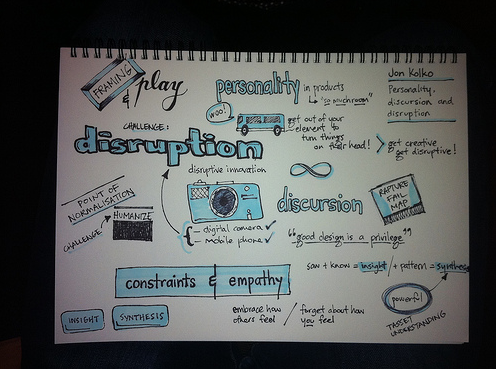 FRAMING
& play
personality in products
"so mushroom"
Jon Kolko
Personality,
discursion and
disruption
woo!
CHALLENGE:
disruption
get out of your
element to
turn things
on their head!
> get creative
get disruptive!
disruptive innovation
POINT OF
NORMALISATION
CHALLENGE
HUMANIZE
- digital camera ✓
- mobile phone ✓
discursion
RAPTURE
FAIL
MAP
"good design is a privilege"
saw + know = insight / + pattern = synthesis
constraints & empathy
powerful
TASSET
UNDERSTANDING
INSIGHT
SYNTHESIS
embrace how
others feel
/ forget about how
you feel